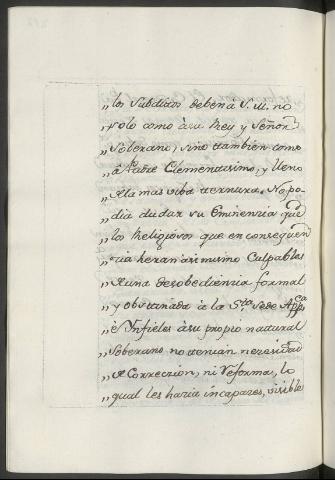 „los Subditos deben à S. M. no
„solo como à su Rey y Señor
„Soberano, sino tambien como
„à Padre Clementisimo, y lleno
„de la mas viba ternura. No po
„dia dudar su Eminenzia que
„los Religiosos que en conseguen
„cia heran asimismo Culpables
„de una desobedienzia formal
„y obstinada à la Sta. Sede Appca
„è Ynfieles à su propio natural
„Soberano no tenian nezesidad
„de Correczion, ni Reforma, lo
„qual les haria incapazes, visible